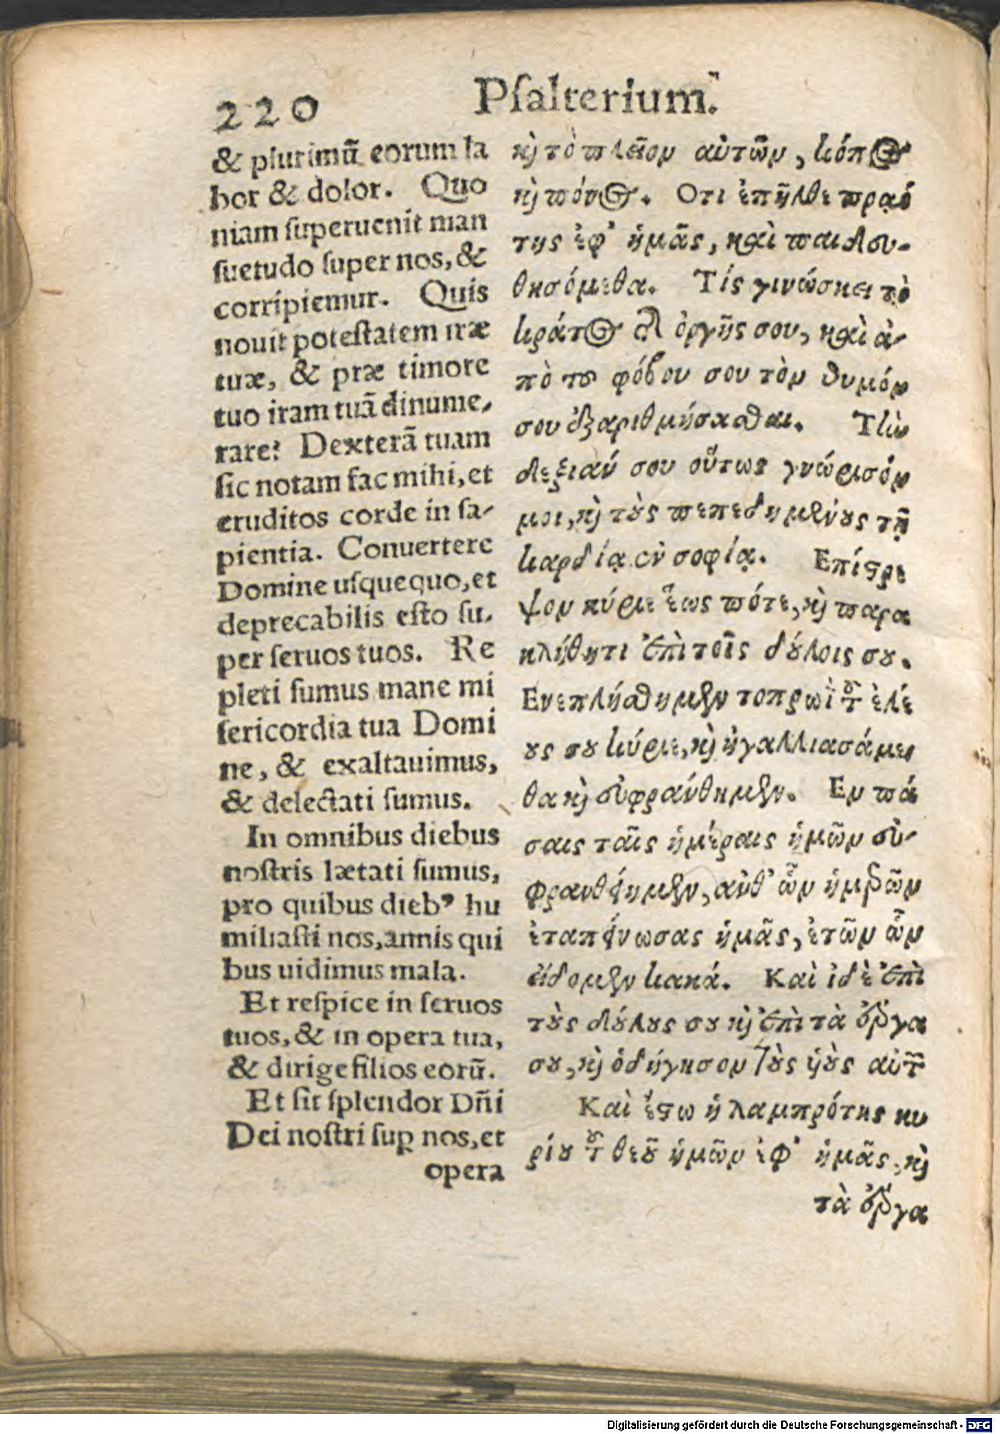 220 Pſalterium.
& plurimũ eorum la
bor & dolor. Quo
niam ſuperuenit man
ſuetudo ſuper nos, &
corripiemur. Quis
nouit poteſtatem iræ
tuæ, & præ timore
tuo iram tuã dinume-
rare? Dexterã tuam
ſic notam fac mihi, et
eruditos corde in ſa-
pientia. Conuertere
Domine uſquequo, et
deprecabilis eſto ſu-
per ſeruos tuos. Re
pleti ſumus mane mi
ſericordia tua Domi
ne, & exaltauimus,
& delectati ſumus.
In omnibus diebus
noſtris lætati ſumus,
pro quibus dieb⁹ hu
miliaſti nos, annis qui
bus uidimus mala.
Et reſpice in ſeruos
tuos, & in opera tua,
& dirige filios eorũ.
Et ſit ſplendor Dñi
Dei noſtri ſuꝑ nos, et
opera
ϗ τὸ πλεῖον αὐτῶν, κόπος
ϗ πόνος. Οτι ἐπῆλθε πραό
της ἐφ' ἡμᾶς, καὶ παιδευ-
θησόμεθα. Τίς γινώσκει τὸ
κράτος τῆς ὀργῆς σου, καὶ ἀ-
πὸ τοῦ φόβου σου τὸν θυμόν
σου ἐξαριθμήσασθαι. Τὴν
δεξιάν σου οὕτως γνώρισόν
μοι, ϗ τοὺς πεπεδημένους τῇ
καρδίᾳ ἐν σοφίᾳ. Επίστρε
ψον κύριε ἕως πότε, ϗ παρα
κλήθητι ἐπὶ τοῖς δούλοις σου.
Ενεπλήσθημεν τοπρωῒ τοῦ ἐλέ
ους σου κύριε, ϗ ἠγαλλιασάμε
θα ϗ εὐφράνθημεν. Εν πά
σαις ταῖς ἡμέραις ἡμῶν εὐ-
φρανθείημεν, ἀνθ' ὧν ἡμερῶν
ἐταπείνωσας ἡμᾶς, ἐτῶν ὧν
εἴδομεν κακά. Καὶ ἰδὲ ἐπὶ
τοὺς δούλους σου ϗ ἐπὶ τὰ ἔργα
σου, ϗ ὁδήγησον τοὺς υἱοὺς αὐτῶν
Καὶ ἔστω ἡ λαμπρότης κυ
ρίου τοῦ θεοῦ ἡμῶν ἐφ' ἡμᾶς, ϗ
τὰ ἔργα
Digitalisierung gefördert durch die Deutsche Forschungsgemeinschaft - DFG